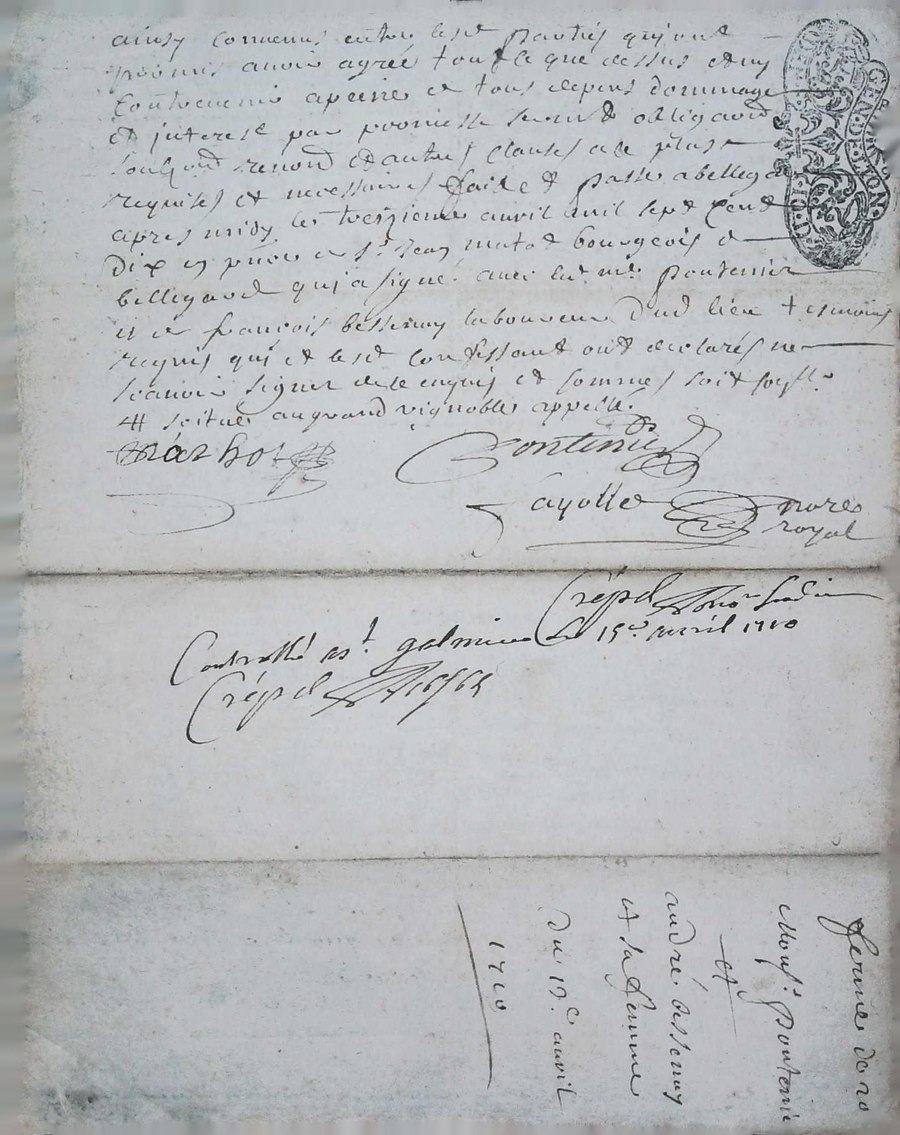 ainsy convenus entre lesd parties qui ont
promis avoir agreé tout ce que dessus et ny
contrevenir a peine de tous depens dommage
et interest par promesse serment obligaons
renond et autres clauses a ce plus
requises et necessaires faict et passé a bellegarde
apres midy le treizieme avril mil sept cend
dix en pnce de sr Jean bourgeois de
bellegarde qui a signé avec led mr pontenier
et de françois bessenay laboureur dud lieu tesmoins
requis qui et lesd confessant ont declarés ne
scavoir signer de ce enquis et sommés soit
# scitué au grand vignoble appellé.
pontenier
fayolle nore
royal
GEN. DE LION.
Crépel
Controllé a st. galmier le 15e avril 1710
Crépel
ferme de
Monsr. pontenier
et
andré bessenay
et sa femme
du 13e avril
1710